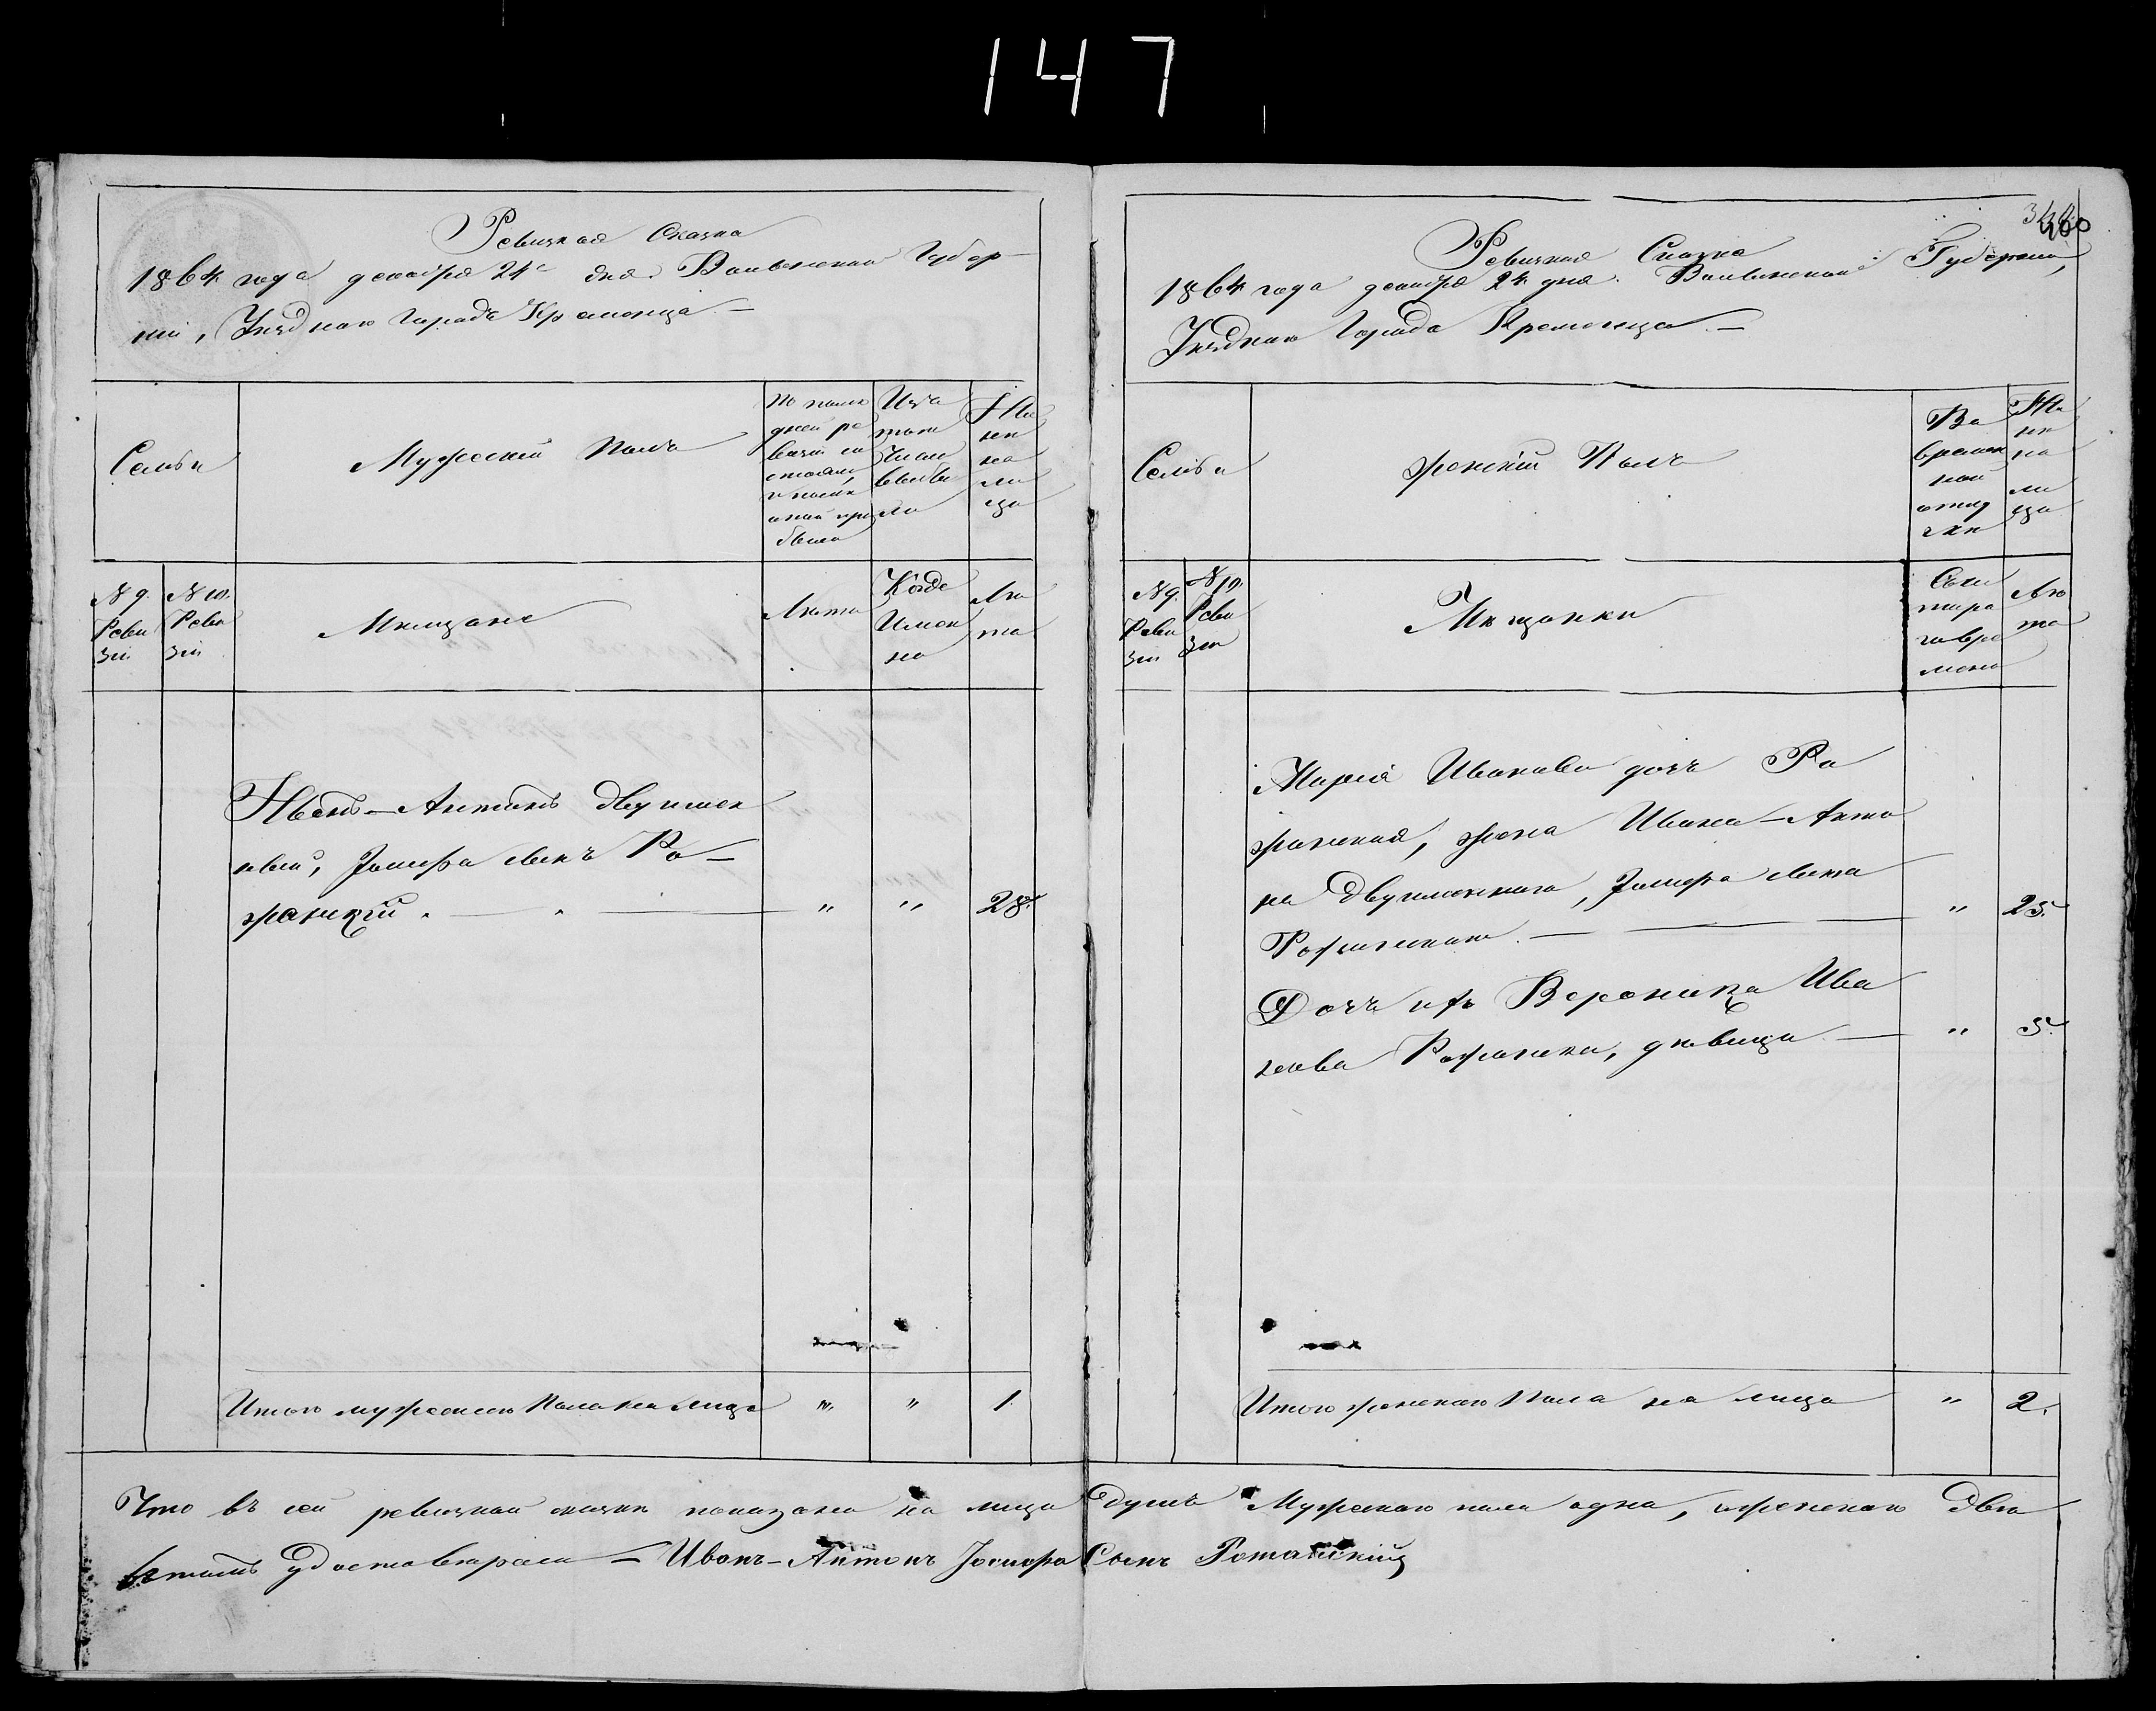 147
Ревизкая Сказка
1864 года декабря 24го дня. Волынской Губер-
ніи, Уѣзднаго Города Кременца. —
Семьи
Мужескій Полъ
По послѣ
дней ре
визіи со
стояло,
и послѣ
оной при
было
Изъ
того
Числа
выбы
ло
Ны
нѣ
на
ли
цо
№ 9.
Реви
зіи
№ 10.
Реви
зіи
Мѣщане
Лѣта
Когда
Имен
но
Лѣ
та
Иванъ-Антонъ двуимен
ный, Іосифа сынъ Ро-
жанскій. — " " 28.
Итого мужескаго Пола на лицо " " 1.
360
Ревизкая Сказка
1864 года декабря 24 дня. Волынской Губерніи,
Уѣзднаго Города Кременца. —
Семьи
Женскій Полъ
Во
времен
ной
отлу
чкѣ
Ны
нѣ
на
ли
цо
№ 9.
Реви
зіи
№ 10.
Реви
зіи
Мѣщанки
Съко
тораго
вре
мени
Лѣ
та
Марія Иванова дочь Ро
жанская, жена Ивана-Анто
на двуименнаго, Іосифа сына
Рожанскаго. — " 25.
Дочь ихъ Вероника Ива
нова Рожанска, дѣвица — " 5.
Итого женскаго Пола на лицо " 2.
Что въ сей ревизкой сказкѣ показано на лицо душъ Мужескаго пола одна, женскаго двѣ
въ томъ удостовѣряю — Иванъ-Антонъ Іосифа Сынъ Рожанскій